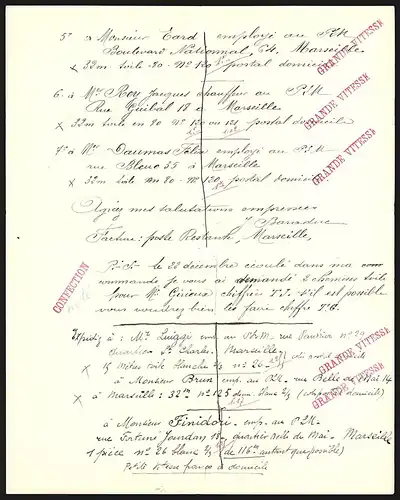 5° à Monsieur Tard employé au P.L.M
Boulevard National, 64. Marseille
x 32m toile 80 - N° 120 postal domicile
GRANDE VITESSE
6° à Mr Rey Jacques chauffeur au P.L.M
Rue Guibal 18 à Marseille
x 32m toile en 80 N° 120 ou 121 postal domicile
GRANDE VITESSE
7° à Mr Daumas Félix employé au P.L.M
rue Bleue 35 à Marseille
x 32m toile en 80 - N° 120 postal domicile
GRANDE VITESSE
Agréez mes salutations empressées
J Baraduc
Facture: poste Restante, Marseille,
CONFECTION
P.S. le 22 décembre écoulé dans ma com
commande je vous ai demandé 2 chemises toile
pour Mr chiffrées T.J. s'il est possible
vous voudrez bien les faire chiffré T.G.
Expédié à: Mr Luiggi emp. au P.L.M. rue n° 24
quartier St Charles. Marseille
x 15 Mètres toile blanche 2/3 n° 26
GRANDE VITESSE
à Monsieur Brun emp. au P.L.M. rue Belle de Mai 14
à Marseille: 32m n° 125 blanc 2/3 (colis postal domicile)
GRANDE VITESSE
à Monsieur Finidori emp. au P.L.M.
rue Fortuné Jourdan 13 quartier Belle de Mai - Marseille
1 pièce n° 26 blanc 2/3 (de 116m autant que possible)
Petite Vitesse franco à domicile